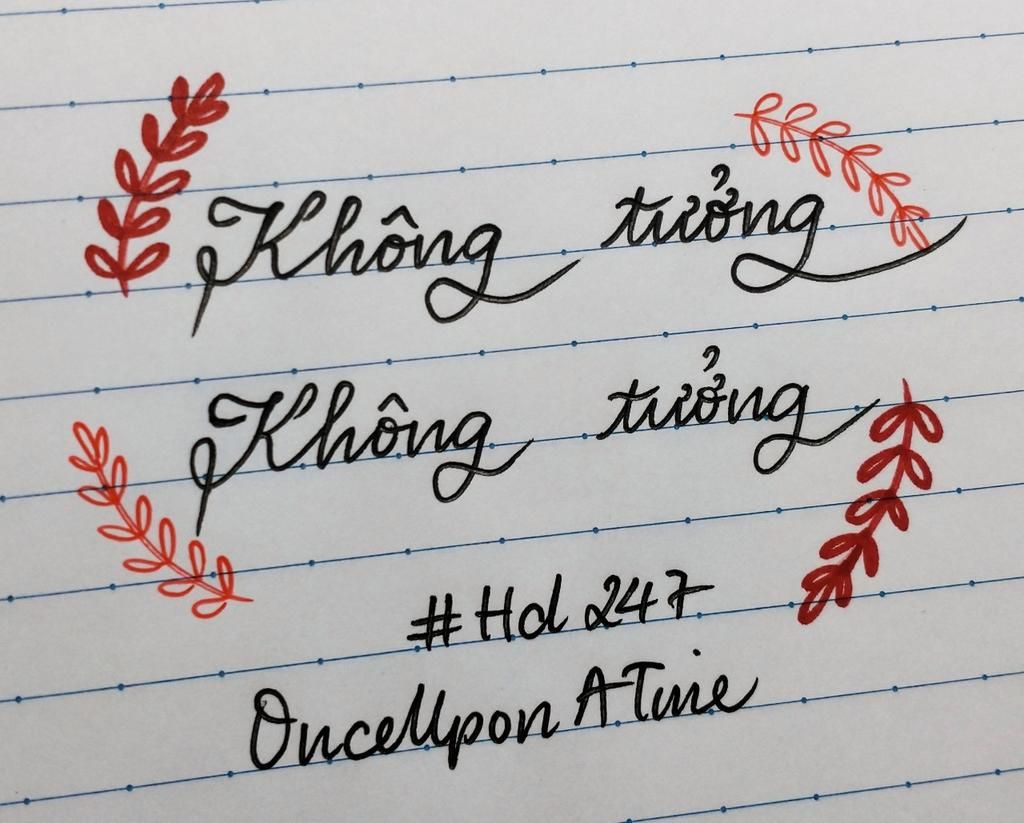 Không tưởng
Không tưởng
#Hd 247
OnceUpon A Time